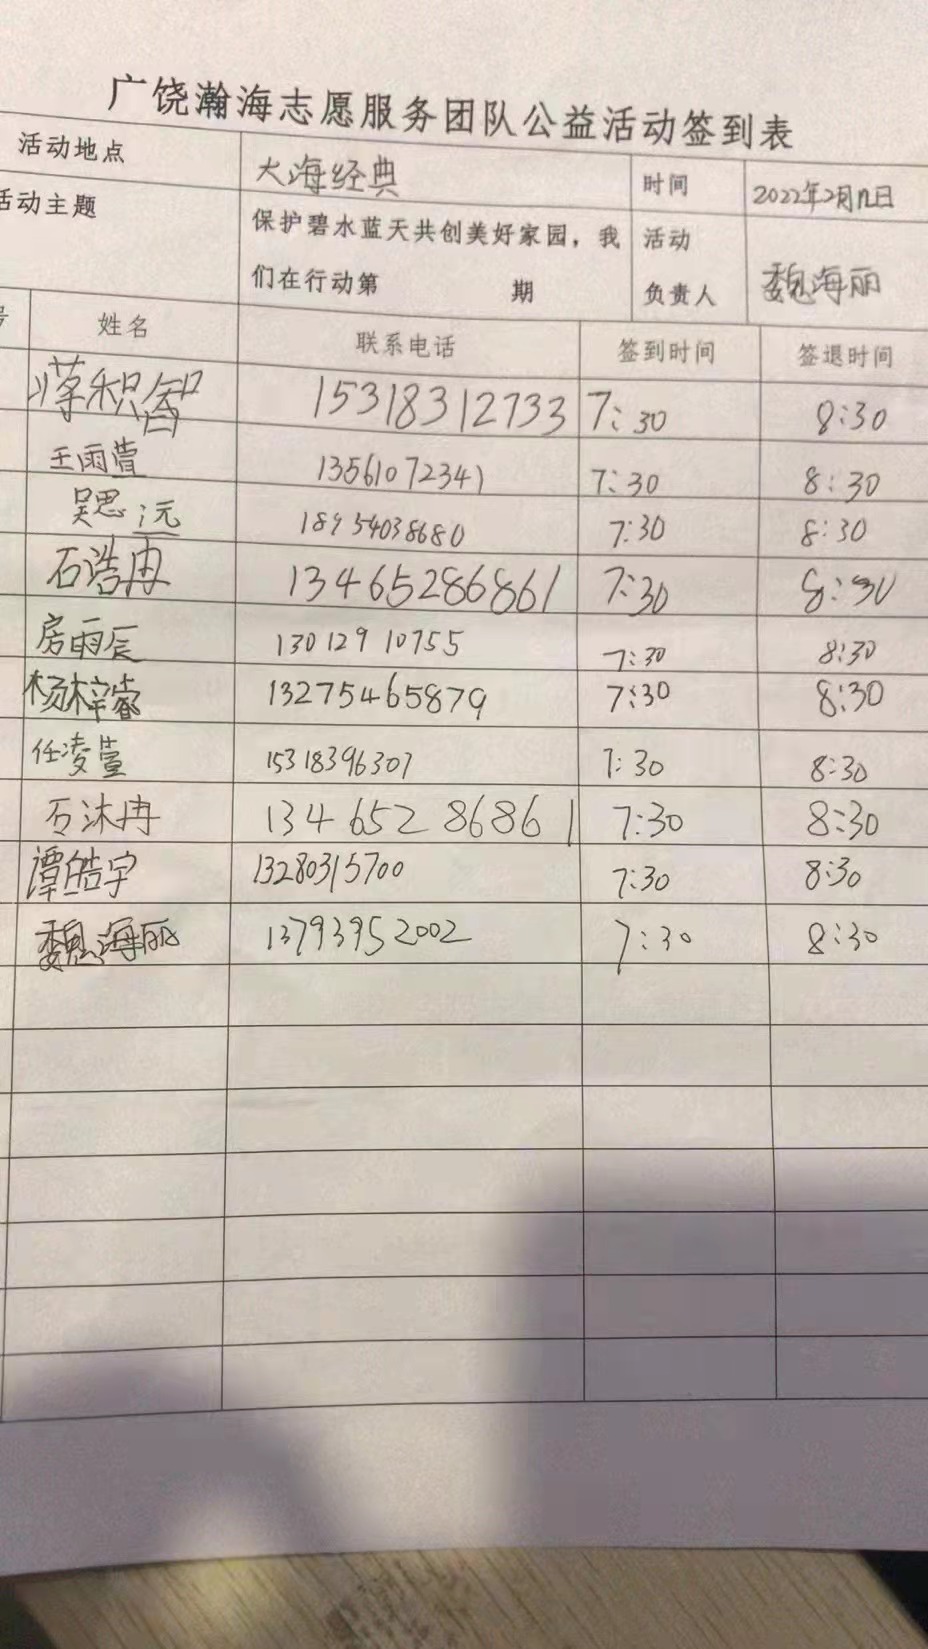 广饶瀚海志愿服务团队公益活动签到表
活动地点 大海经典 时间 2022年2月12日
活动主题 保护碧水蓝天共创美好家园，我 活动
们在行动第 期 负责人 魏海丽
号 姓名 联系电话 签到时间 签退时间
积智 15318312733 7:30 8:30
王雨萱 13561072341 7:30 8:30
吴思沅 18954038680 7:30 8:30
石浩冉 13465286861 7:30 8:30
房雨辰 13012910755 7:30 8:30
杨梓睿 13275465879 7:30 8:30
任凌萱 15318396307 7:30 8:30
石沐冉 13465286861 7:30 8:30
谭皓宇 13280315700 7:30 8:30
魏海丽 13793952002 7:30 8:30